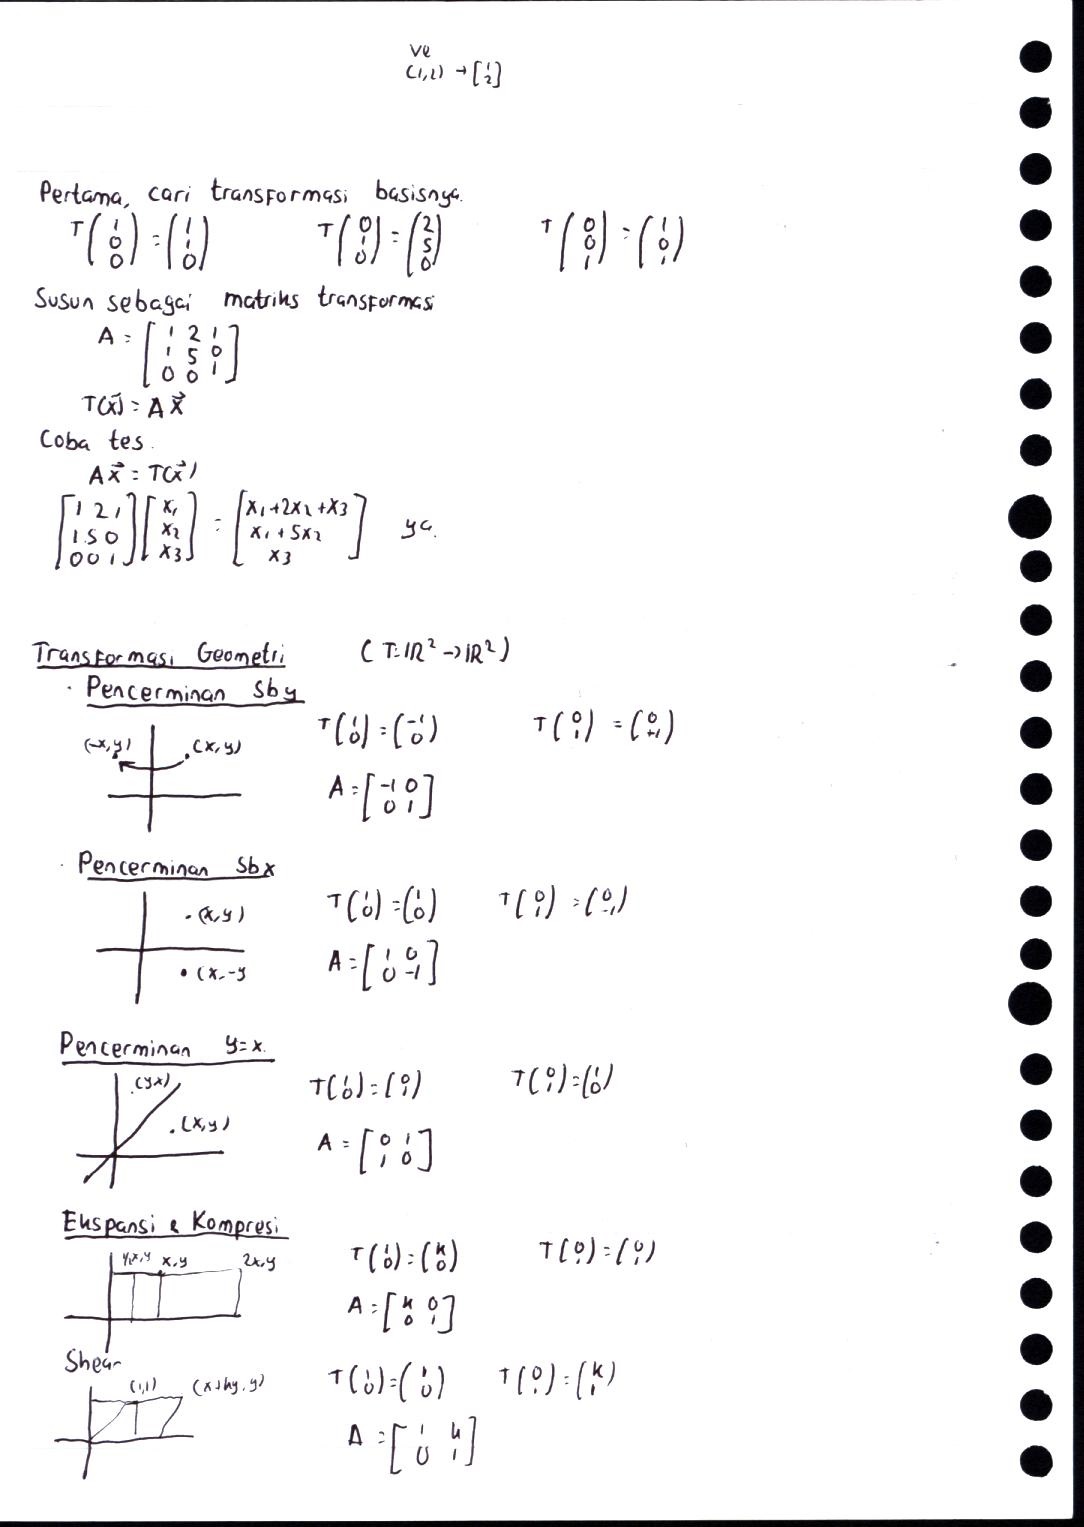 ve
(1,2) → [1 2]
Pertama, cari transformasi basisnya.
T(1 0 0) = (1 1 0) T(0 1 0) = (2 5 0) T(0 0 1) = (1 0 1)
Susun sebagai matriks transformasi
A = [1 2 1
1 5 0
0 0 1]
T(x⃗) = A x⃗
Coba tes.
A x⃗ = T(x⃗)
[1 2 1 [x₁ = [x₁+2x₂+x₃
1 5 0 x₂ x₁+5x₂ ya.
0 0 1] x₃] x₃]
Transformasi Geometri (T: ℝ² → ℝ²)
· Pencerminan Sby
T(1 0) = (-1 0) T(0 1) = (0 +1)
(-x,y) (x,y)
A = [-1 0
0 1]
· Pencerminan Sbx
T(1 0) = (1 0) T(0 1) = (0 -1)
(x,y)
A = [1 0
0 -1]
(x,-y
Pencerminan y=x.
(yx)
T(1 0) = (0 1) T(0 1) = (1 0)
(x,y)
A = [0 1
1 0]
Ekspansi & Kompresi
½x,y x,y 2x,y
T(1 0) = (k 0) T(0 1) = (0 1)
A = [k 0
0 1]
Shear
(1,1) (x+ky, y)
T(1 0) = (1 0) T(0 1) = (k 1)
A = [1 k
0 1]